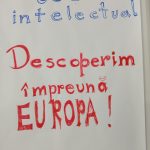 intelectual
Descoperim
împreună
EUROPA !